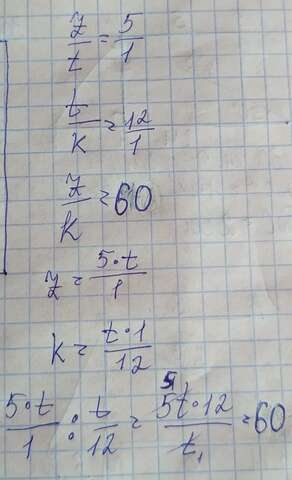 z/t = 5/1
t/k = 12/1
z/k = 60
z = 5·t/1
k = t·1/12
5·t/1 : t/12 = 5t·12/t₁ = 60